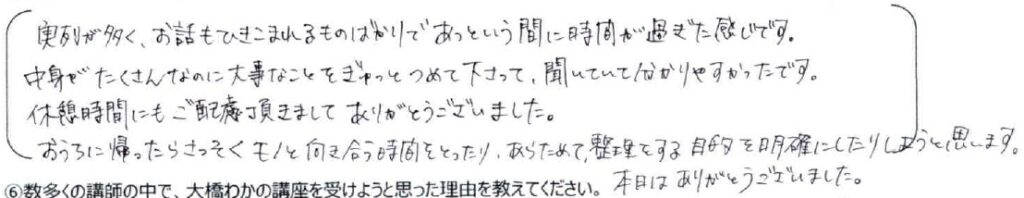 実例が多く、お話もひきこまれるものばかりであっという間に時間が過ぎた感じです。
中身がたくさんなのに大事なことをぎゅっとつめて下さって、聞いていて分かりやすかったです。
休憩時間にもご配慮頂きましてありがとうございました。
おうちに帰ったらさっそくモノと向き合う時間をとったり、あらためて、整理をする目的を明確にしたりしようと思います。
本日はありがとうございました。
⑥数多くの講師の中で、大橋わかの講座を受けようと思った理由を教えてください。